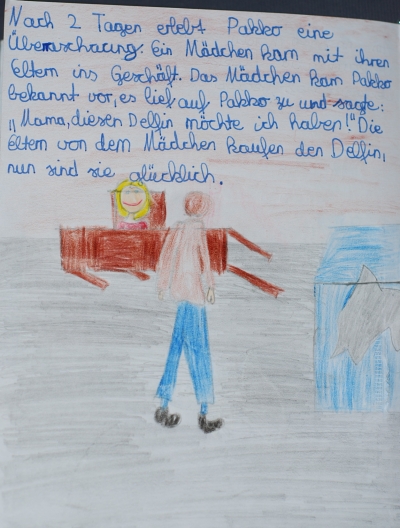 Nach 2 Tagen erlebt Pakko eine
Überraschung. Ein Mädchen kam mit ihren
Eltern ins Geschäft. Das Mädchen kam Pakko
bekannt vor, es lief auf Pakko zu und sagte:
„Mama, diesen Delfin möchte ich haben!" Die
Eltern von dem Mädchen kaufen den Delfin,
nun sind sie glücklich.